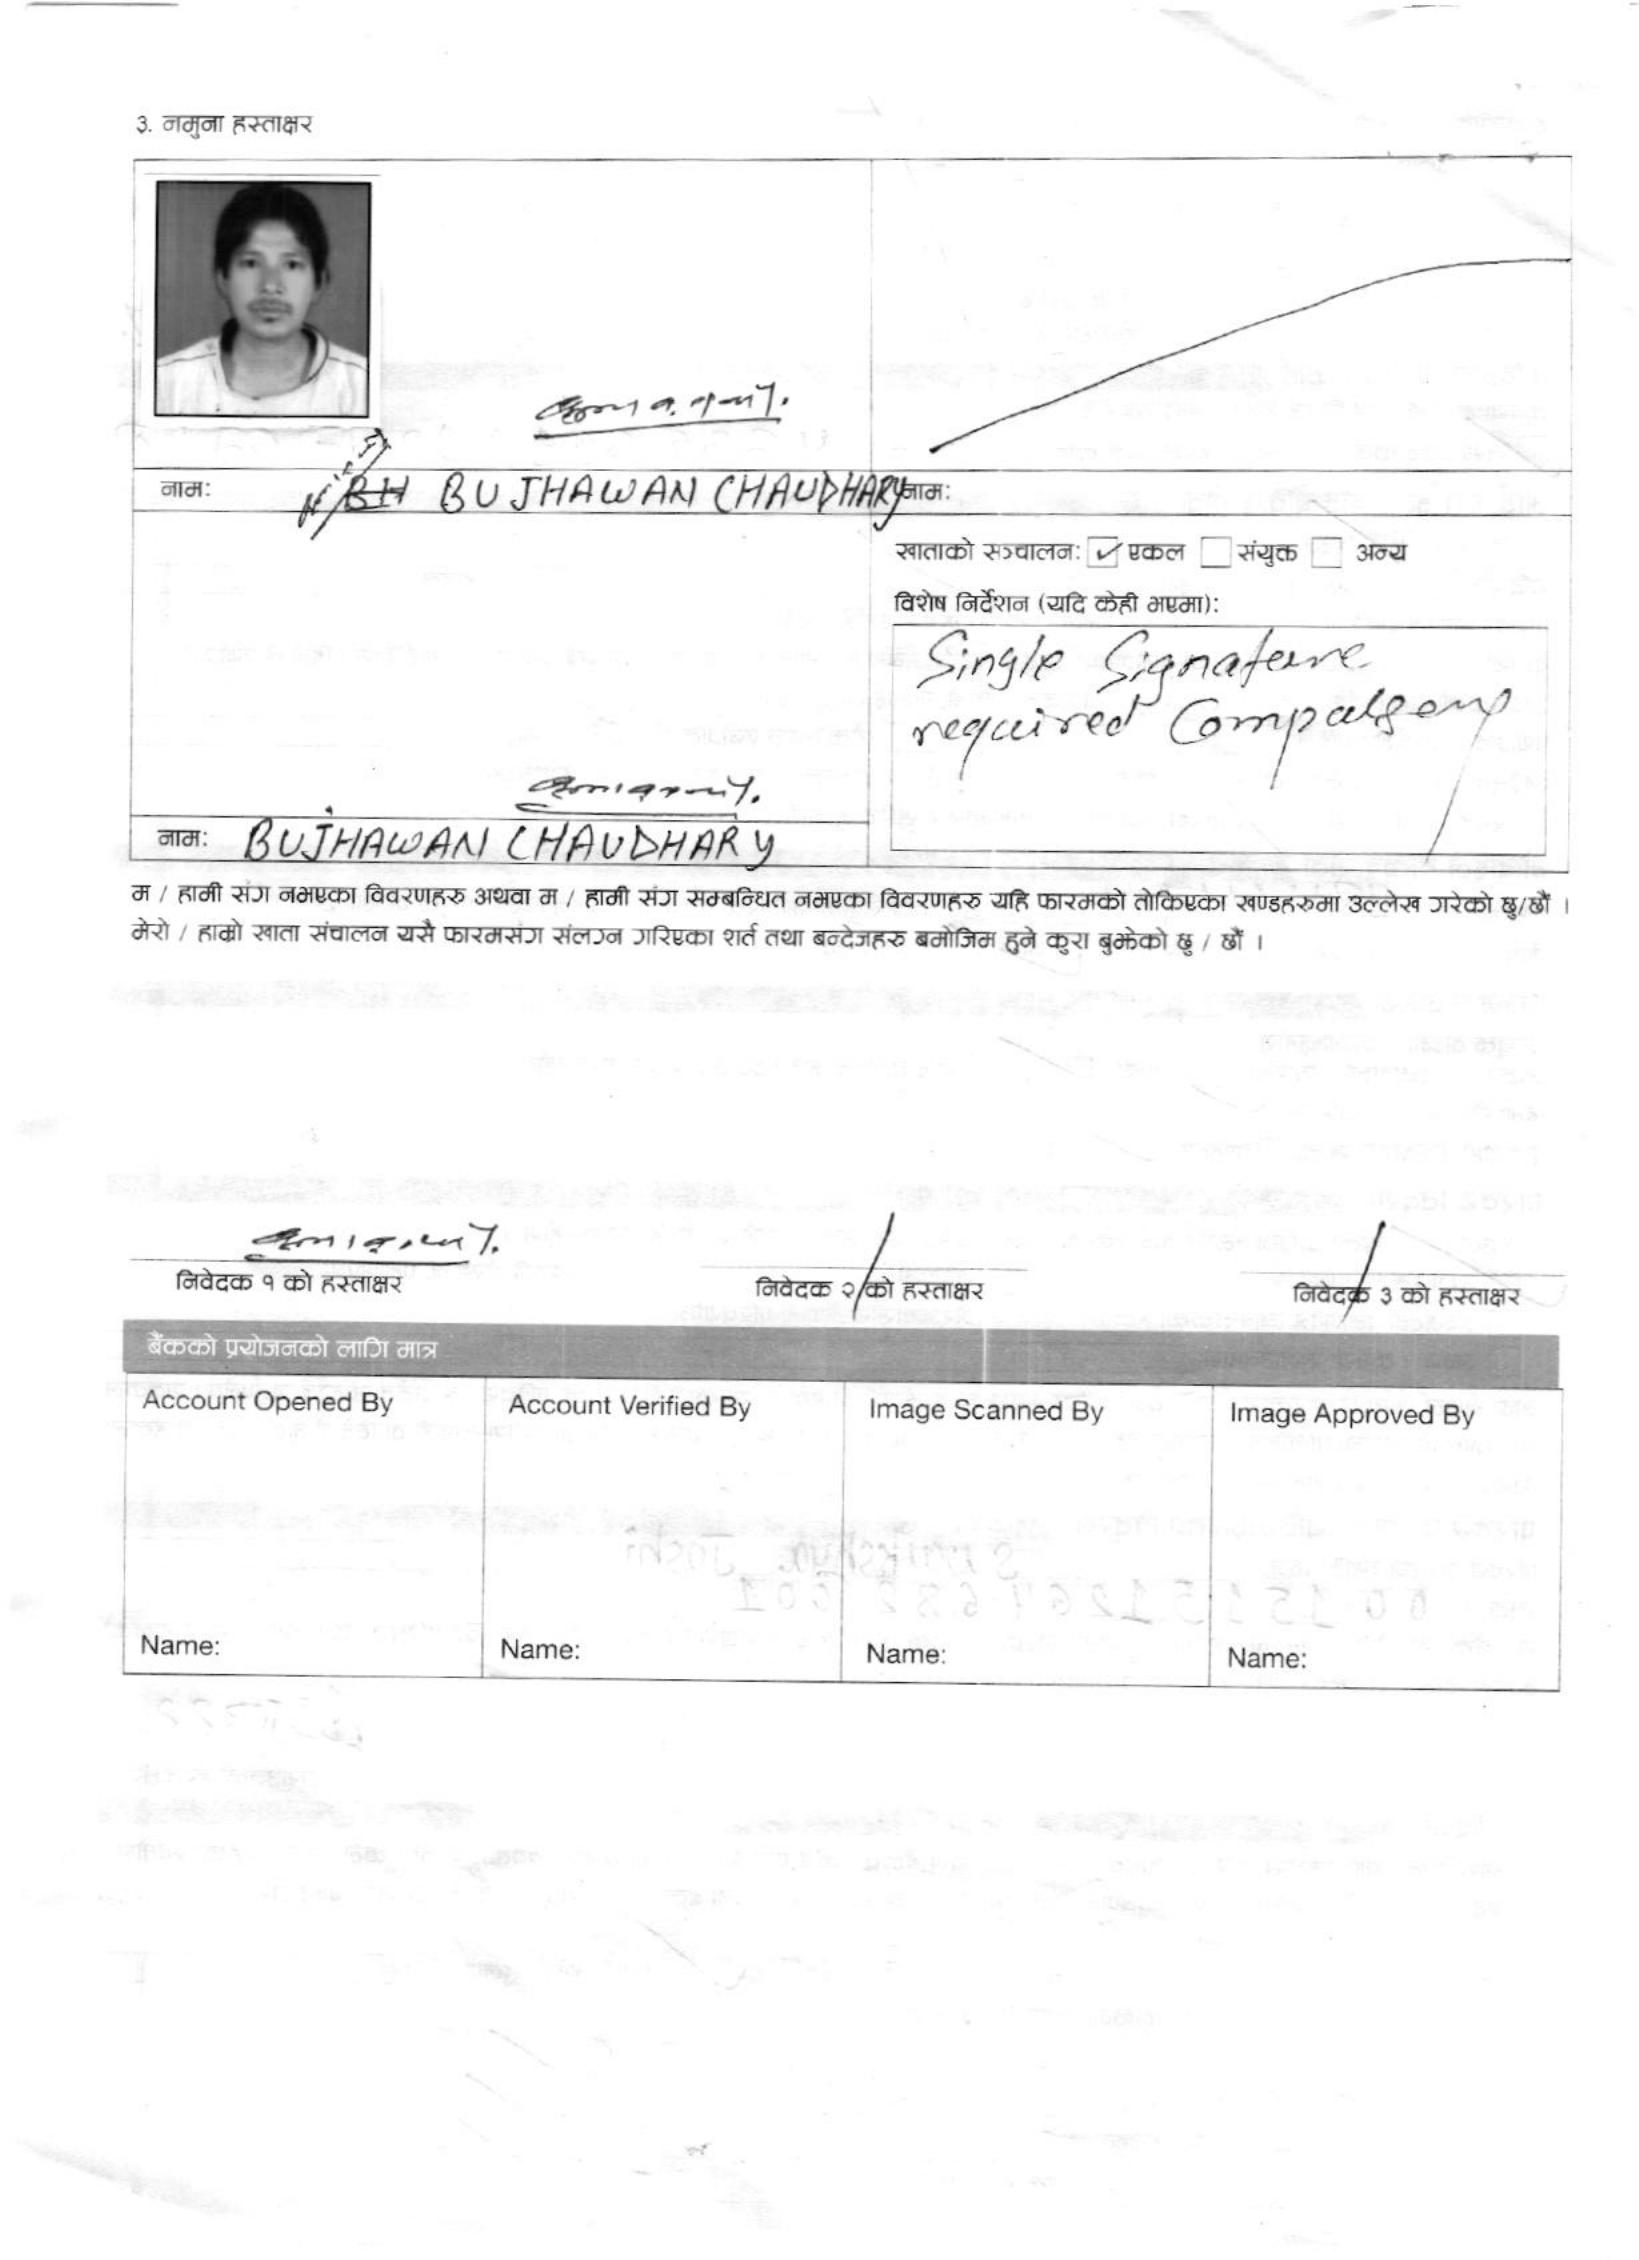 ३. नमुना हस्ताक्षर
नाम: BH BUJHAWAN CHAUDHARY
नाम:
खाताको सञ्चालन: ✓ एकल संयुक्त अन्य
विशेष निर्देशन (यदि केही भएमा):
Single Signature
required Compalsory
नाम: BUJHAWAN CHAUDHARY
म / हामी संग नभएका विवरणहरु अथवा म / हामी संग सम्बन्धित नभएका विवरणहरु यहि फारमको तोकिएका खण्डहरुमा उल्लेख गरेको छु/छौं ।
मेरो / हाम्रो खाता संचालन यसै फारमसंग संलग्न गरिएका शर्त तथा बन्देजहरु बमोजिम हुने कुरा बुझेको छु / छौं ।
निवेदक १ को हस्ताक्षर निवेदक २ को हस्ताक्षर निवेदक ३ को हस्ताक्षर
बैंकको प्रयोजनको लागि मात्र
Account Opened By Account Verified By Image Scanned By Image Approved By
Name: Name: Name: Name: